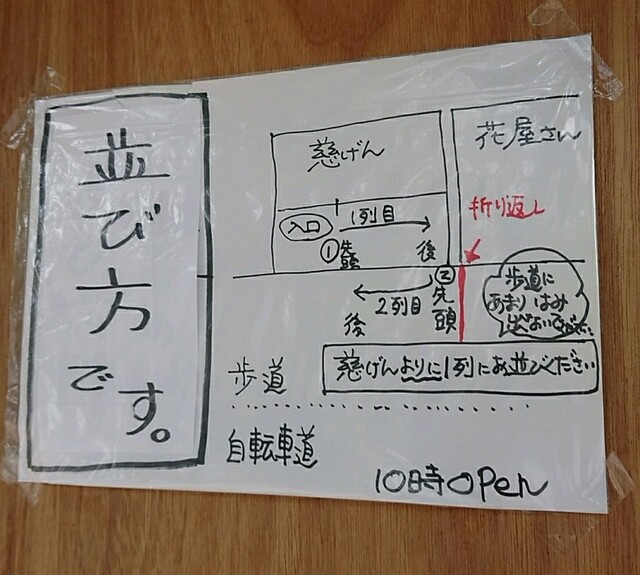 並び方です。
慈げん
花屋さん
入口
1列目
①先頭
後
折り返し
②先頭
2列目
後
歩道に
あまりはみ
慈げんよりに1列にお並びください
歩道
自転車道
10時OPen